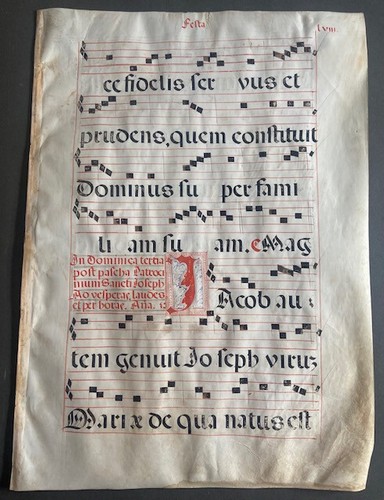 Festa
Lviii
ce fidelis ser vus et
prudens, quem constituit
Dominus su per fami
li am su am. e Mag
In Dominica tertia
post pascha Patroci
nium Sancti Joseph
Ad vesperas, laudes
et per horas. Ana. 1.
J Acob au:
tem genuit Jo seph virum
Mariæ de qua natus est